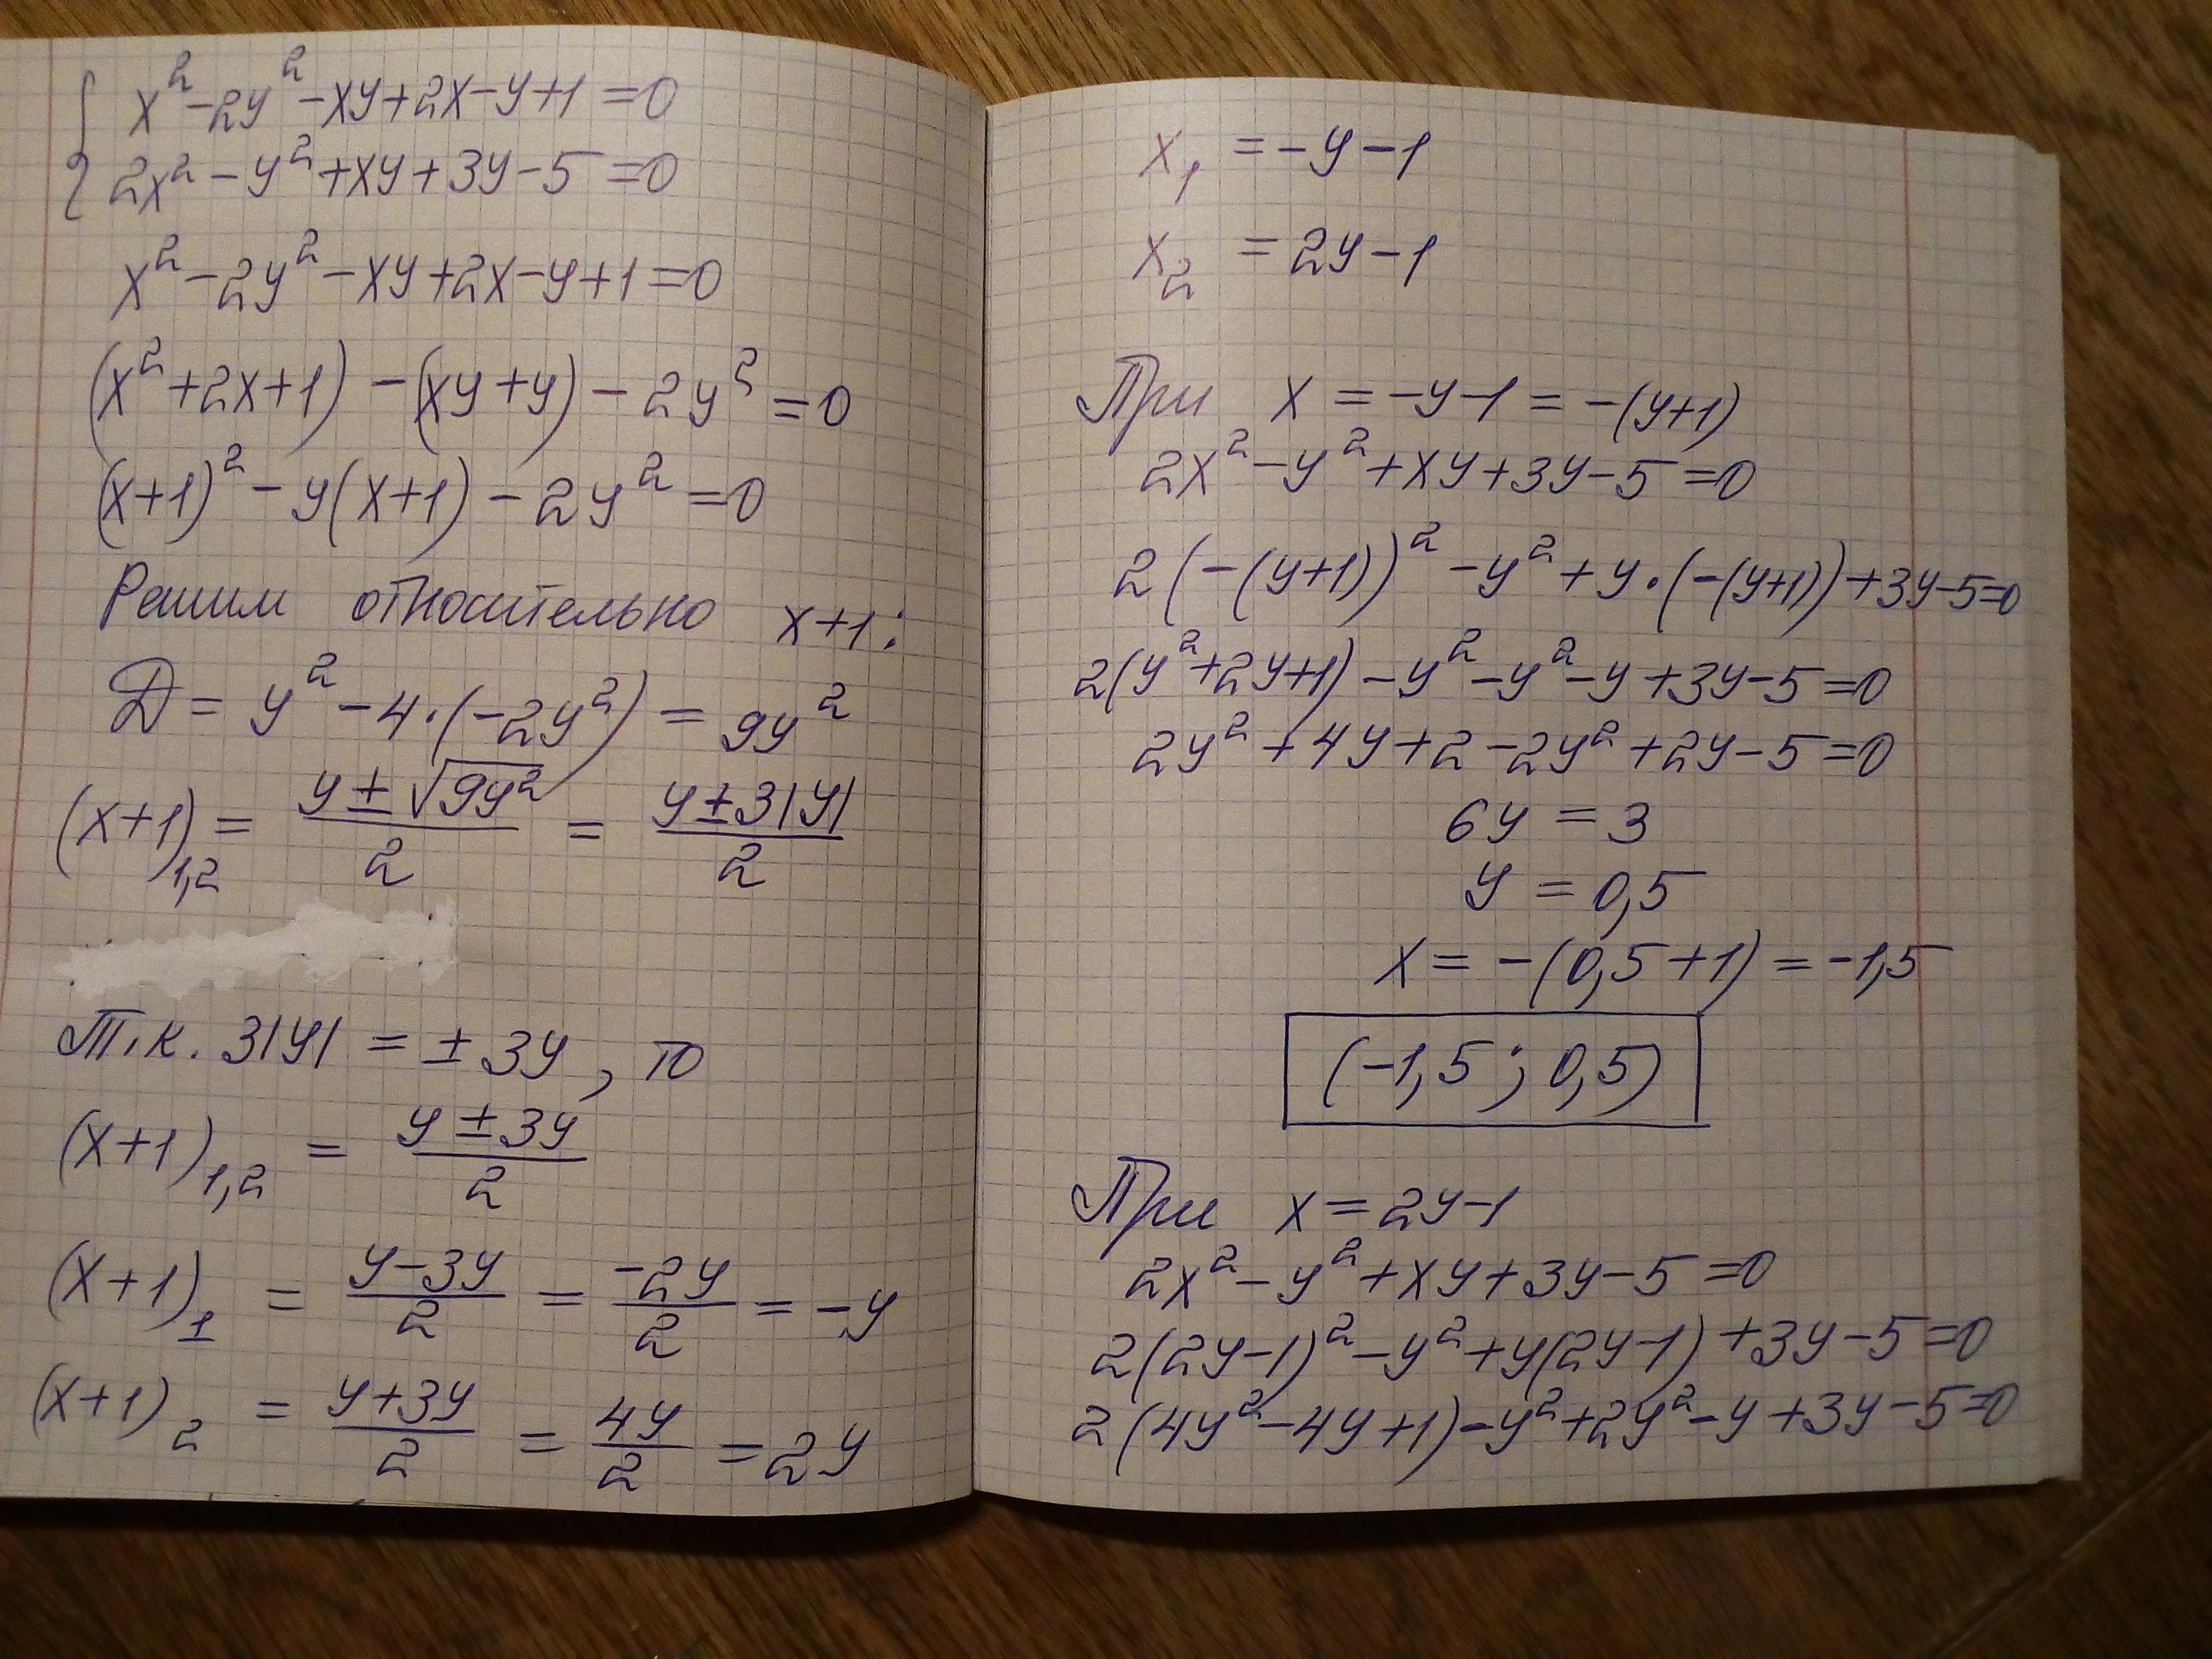 { x² - 2y² - xy + 2x - y + 1 = 0
2x² - y² + xy + 3y - 5 = 0
x² - 2y² - xy + 2x - y + 1 = 0
(x² + 2x + 1) - (xy + y) - 2y² = 0
(x+1)² - y(x+1) - 2y² = 0
Решим относительно x+1:
Д = y² - 4·(-2y²) = 9y²
(x+1)₁,₂ = (y ± √9y²)/2 = (y ± 3|y|)/2
Т.к. 3|y| = ± 3y, то
(x+1)₁,₂ = (y ± 3y)/2
(x+1)₁ = (y - 3y)/2 = -2y/2 = -y
(x+1)₂ = (y + 3y)/2 = 4y/2 = 2y
x₁ = -y - 1
x₂ = 2y - 1
При x = -y - 1 = -(y+1)
2x² - y² + xy + 3y - 5 = 0
2(-(y+1))² - y² + y·(-(y+1)) + 3y - 5 = 0
2(y² + 2y + 1) - y² - y² - y + 3y - 5 = 0
2y² + 4y + 2 - 2y² + 2y - 5 = 0
6y = 3
y = 0,5
x = -(0,5 + 1) = -1,5
(-1,5; 0,5)
При x = 2y - 1
2x² - y² + xy + 3y - 5 = 0
2(2y-1)² - y² + y(2y-1) + 3y - 5 = 0
2(4y² - 4y + 1) - y² + 2y² - y + 3y - 5 = 0